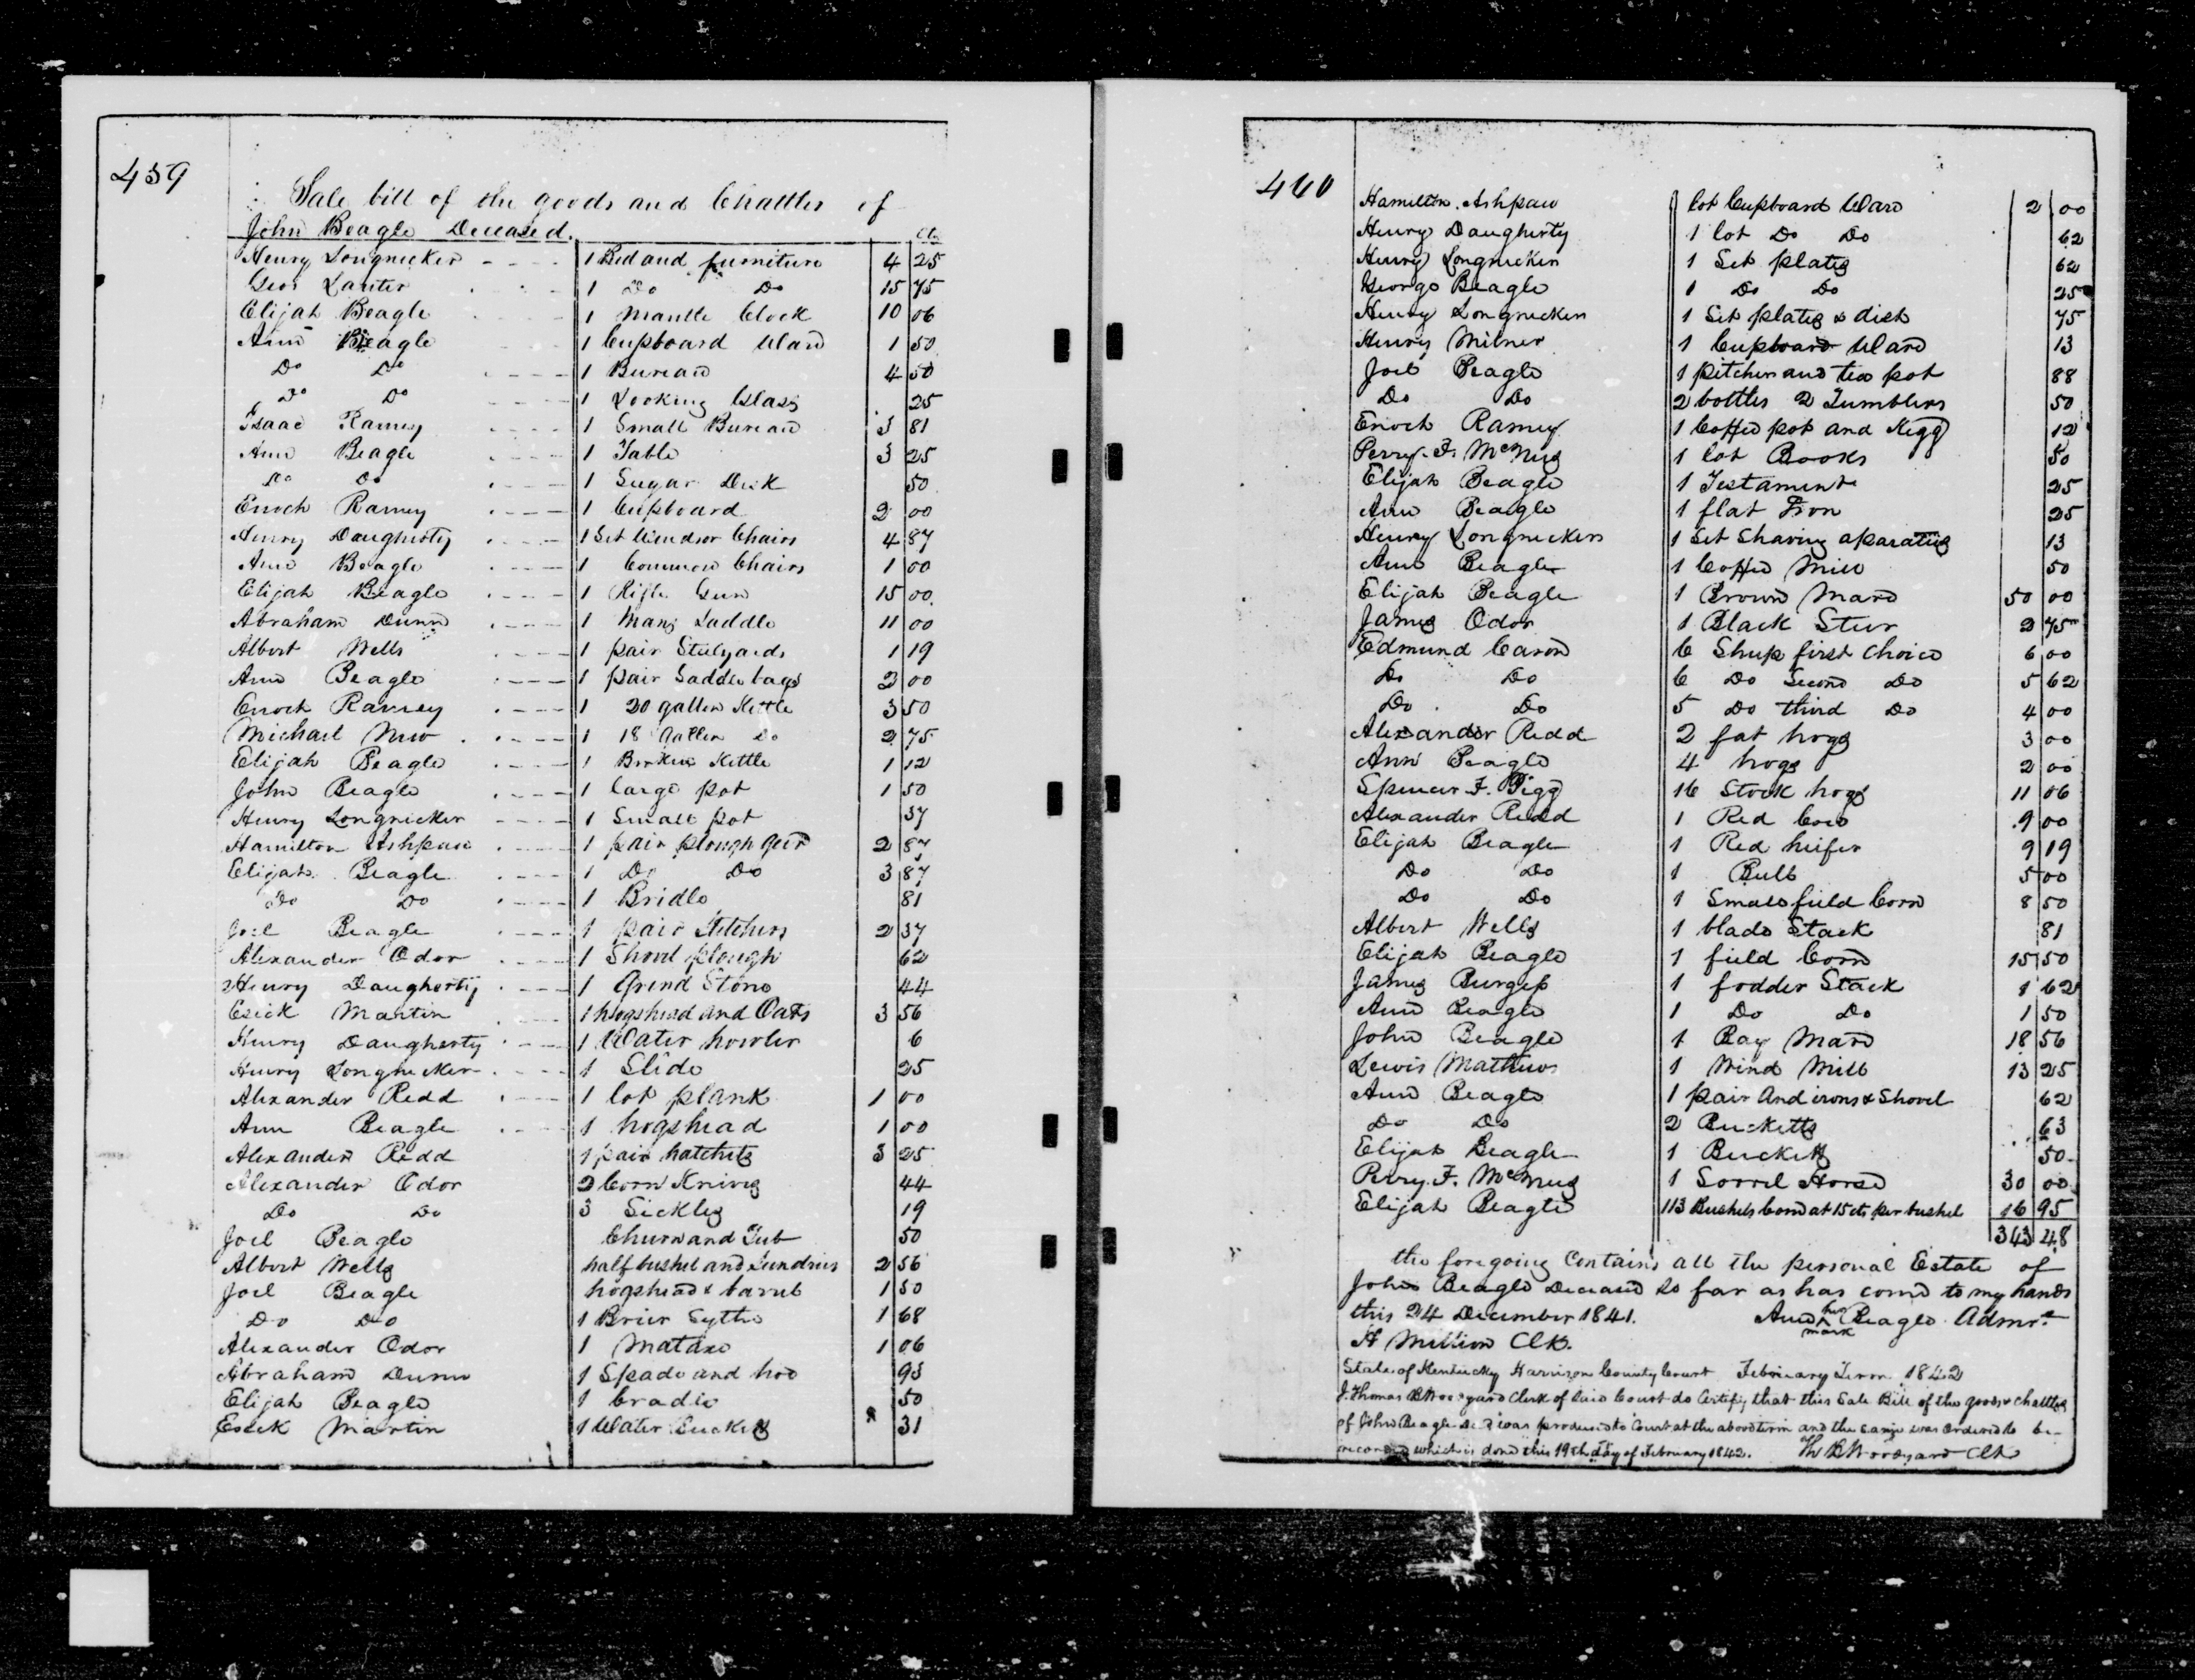 459
Sale bill of the goods and Chattles of
John Beagle Deceased.
Cts
Henry Longnecker 1 Bed and furniture 4 25
Geor Lauter 1 Do Do 15 75
Elijah Beagle 1 Mantle Clock 10 06
Ann Beagle 1 Cupboard Ward 1 50
Do Do 1 Bureau 4 50
Do Do 1 Looking Glass 25
Isaac Ramey 1 Small Bureau 3 81
Ann Beagle 1 Table 3 25
Do Do 1 Sugar Desk 50
Enoch Ramey 1 Cupboard 2 00
Henry Daugherty 1 Set Windsor Chairs 4 87
Ann Beagle 1 Common Chairs 1 00
Elijah Beagle 1 Rifle Gun 15 00
Abraham Dunn 1 Mans Saddle 11 00
Albert Wells 1 pair Stulyards 1 19
Ann Beagle 1 pair Saddle bags 2 00
Enoch Ramey 1 20 gallon Kettle 3 50
Michael New 1 18 Gallon Do 2 75
Elijah Beagle 1 Broken Kettle 1 12
John Beagle 1 large pot 1 50
Henry Longnecker 1 Small pot 37
Hamilton Ashpaw 1 pair plough geer 2 87
Elijah Beagle 1 Do Do 3 87
Do Do 1 Bridle 81
Joel Beagle 1 pair Stichers 2 37
Alexander Odor 1 Shovel plough 62
Henry Daugherty 1 Grind Stone 44
Esick Martin 1 hogshead and Oats 3 56
Henry Daugherty 1 Water howler 6
Henry Longnecker 1 Slide 25
Alexander Redd 1 lot plank 1 00
Ann Beagle 1 hogshead 1 00
Alexander Redd 1 pair hatchets 3 25
Alexander Odor 2 Corn Knives 44
Do Do 3 Sickles 19
Joel Beagle Churn and Tub 50
Albert Wells half bushel and Sundries 2 56
Joel Beagle hogshead & barrel 1 50
Do Do 1 Brier Sythe 1 68
Alexander Odor 1 Mataxe 1 06
Abraham Dunn 1 Spade and hoe 93
Elijah Beagle 1 Cradle 50
Esick Martin 1 Water Buckett 31
460
Hamilton Ashpaw 1 lot Cupboard Ward 2 00
Henry Daugherty 1 lot Do Do 62
Henry Longnecker 1 Set plates 62
George Beagle 1 Do Do 25
Henry Longnecker 1 Set plates & dish 75
Henry Milner 1 Cupboard Ward 13
Joel Beagle 1 pitcher and tea pot 88
Do Do 2 bottles 2 Tumblers 50
Enoch Ramey 1 Coffee pot and Kegg 12
Perry F. McNees 1 lot Books 50
Elijah Beagle 1 Testament 25
Ann Beagle 1 flat Iron 25
Henry Longnecker 1 Set Shaving aparatus 13
Ann Beagle 1 Coffee Mill 50
Elijah Beagle 1 Brown Mare 50 00
James Odor 1 Black Steer 2 75
Edmund Cason 6 Sheep first choice 6 00
Do Do 6 Do Second Do 5 62
Do Do 5 Do third Do 4 00
Alexander Redd 2 fat hogs 3 00
Ann Beagle 4 hogs 2 00
Spencer F. Pigg 16 Stock hogs 11 06
Alexander Redd 1 Red Cow 9 00
Elijah Beagle 1 Red heifer 9 19
Do Do 1 Bull 5 00
Do Do 1 Small field Corn 8 50
Albert Wells 1 blade Stack 81
Elijah Beagle 1 field Corn 15 50
James Burgess 1 fodder Stack 1 62
Ann Beagle 1 Do Do 1 50
John Beagle 1 Bay Mare 18 56
Lewis Mathews 1 Wind Mill 13 25
Ann Beagle 1 pair And irons & Shovel 62
Do Do 2 Bucketts 63
Elijah Beagle 1 Buckett 50
Perry F. McNees 1 Sorrel Horse 30 00
Elijah Beagle 113 Bushels Corn at 15 cts per bushel 16 95
343 48
the foregoing Contains all the personal Estate of
John Beagle Deceased so far as has come to my hands
this 24 December 1841. Ann her x mark Beagle Admr.x
H Million Clk.
State of Kentucky Harrison County Court February Term 1842
I Thomas B Woodyard Clerk of said Court do Certify that this Sale Bill of the goods & chattles
of John Beagle Decd was produced to Court at the above term and the same was ordered to be
recorded which is done this 19th day of February 1842. Th B Woodyard Clk